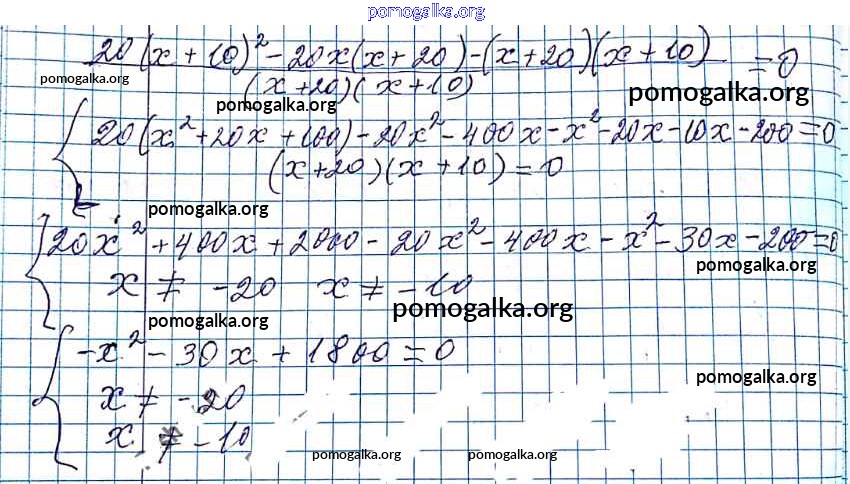 pomogalka.org
20(x + 10)² - 20x(x + 20) - (x + 20)(x + 10)
(x + 20)(x + 10) = 0
pomogalka.org
pomogalka.org
pomogalka.org
20(x² + 20x + 100) - 20x² - 400x - x² - 20x - 10x - 200 = 0
(x + 20)(x + 10) = 0
pomogalka.org
20x² + 400x + 2000 - 20x² - 400x - x² - 30x - 200 = 0
pomogalka.org
x ≠ -20 x ≠ -10
pomogalka.org
pomogalka.org
-x² - 30x + 1800 = 0
pomogalka.org
x ≠ -20
x ≠ -10
pomogalka.org pomogalka.org